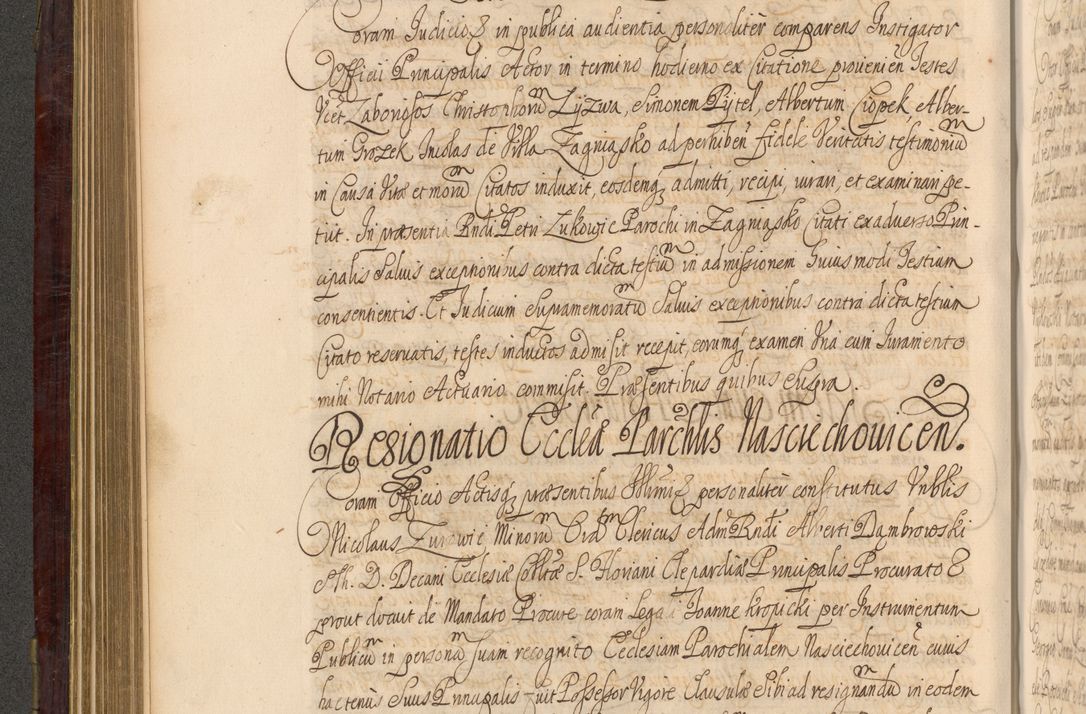 Coram Judicio & in publica audientia personaliter comparens Instigator
Officii Principalis Actor in termino hodierno ex Citatione provenien Testes
Vict Laborigsos Christophorũ Zyzwa, Simonem Pytel, Albertum Ciopek Alber-
tum Grozek Incolas de Villa Zagniasko ad perhiben fidele Veritatis testimoniũ
in Causa Vitæ et morũ Citatos induxit, eosdemq admitti, recipi, iurari, et examinari pe-
tiit. In præsentia Rndi Petri Zukowic Parochi in Zagniasko Citati ex adverso Prin-
cipalis Salvis exceptionibus contra dicta testiũ in admissionem huiusmodi Testium
consentientis. Et Judicium Supramemoratũ Salvis exceptionibus contra dicta testium
Citato reservatis, testes inductos admisit recepit, eorumq examen Vna cum Juramento
mihi Notario Actuario commisit. Præsentibus quibus Supra.
Resignatio Eccleæ Parchlis Nasciechovicen.
Coram Officio Actisq præsentibus personaliter constitutus Vnblis
Nicolaus Zurowic Minorũ Ord Clericus Adm Rndi Alberti Dambrowski
Decani Ecclesiæ Colltæ S. Floriani Clepardiæ Principalis Procurato &
prout docuit de Mandato Procure coram Joanne Kropicki per Instrumentum
Publicũ in personã suam recognito Ecclesiam Parochialem Nasciechovicen cuius
hactenus Suus Principalis fuit Possessor Vigore Clausulæ Sibi ad resignandũ in eodem